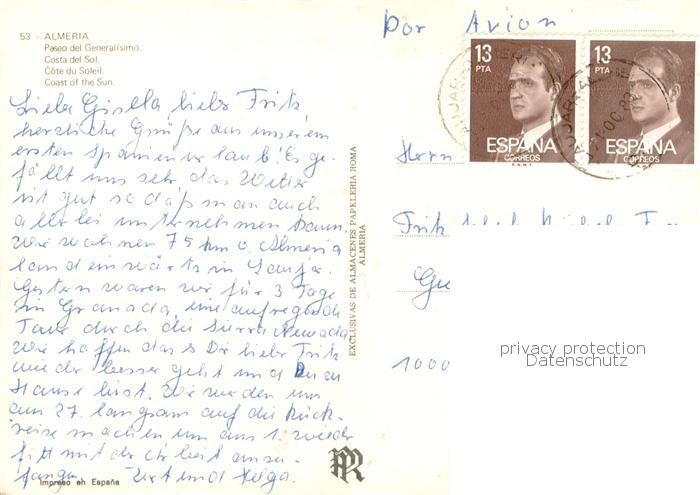 53 - ALMERIA
Paseo del Generalísimo.
Costa del Sol.
Côte du Soleil.
Coast of the Sun.
Liebe Gisela, lieber Fritz,
herzliche Grüße aus unserem
ersten Spanienurlaub! Es ge-
fällt uns sehr, das Wetter
ist gut sodaß man auch
allerlei unternehmen kann.
Wir wohnen 75 km v. Almeria
landeinwärts in
Gestern waren wir für 3 Tage
in Granada, eine aufregende
Tour durch die Sierra Nevada
Wir hoffen das Dir lieber Fritz
wieder besser geht und Du zu
Hause bist. Wir werden uns
am 27. langsam auf die Rück-
reise machen um am 1. wieder
fit mit der Arbeit anzu-
fangen. und Helga.
Impreso en España
EXCLUSIVAS DE ALMACENES PAPELERIA ROMA
ALMERIA
Por Avion
13
PTA
ESPAÑA
CORREOS
F.N.M.T.
13
PTA
ESPAÑA
CORREOS
Herrn
Fritz
1000
privacy protection
Datenschutz